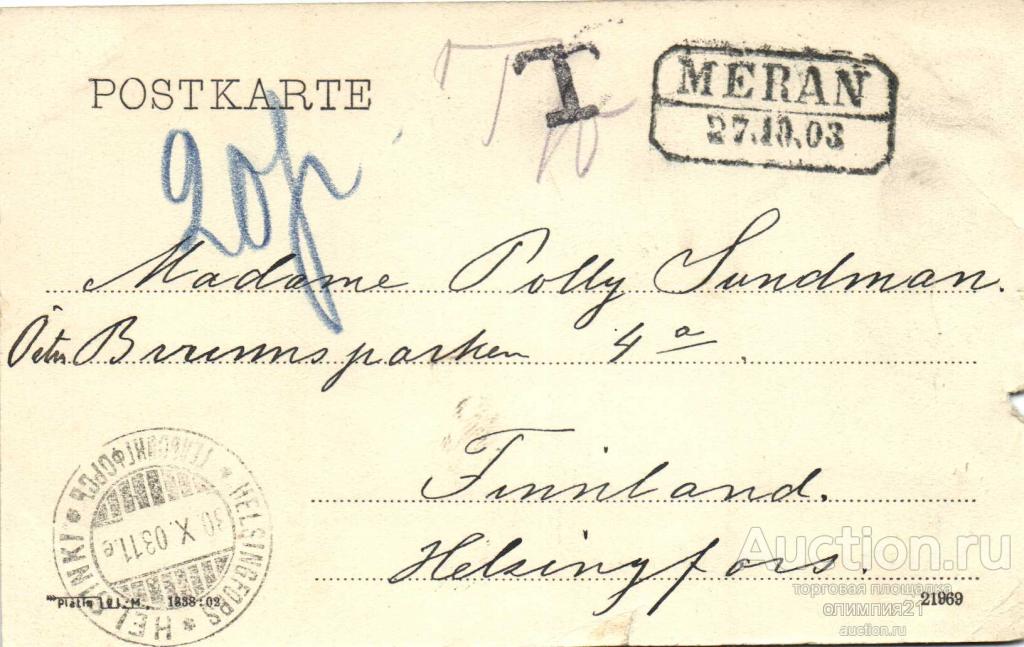 POSTKARTE
T
T
MERAN
27.10.03
20 p
Madame Polly Sundman.
Brunnsparken 4 a.
Finnland.
Helsingfors.
HELSINGFORS * HELSINKI * ГЕЛЬСИНГФОРСЪ *
30.X.03 11.e
1838:02
21969
Auction.ru
торговая площадка
олимпия21
auction.ru